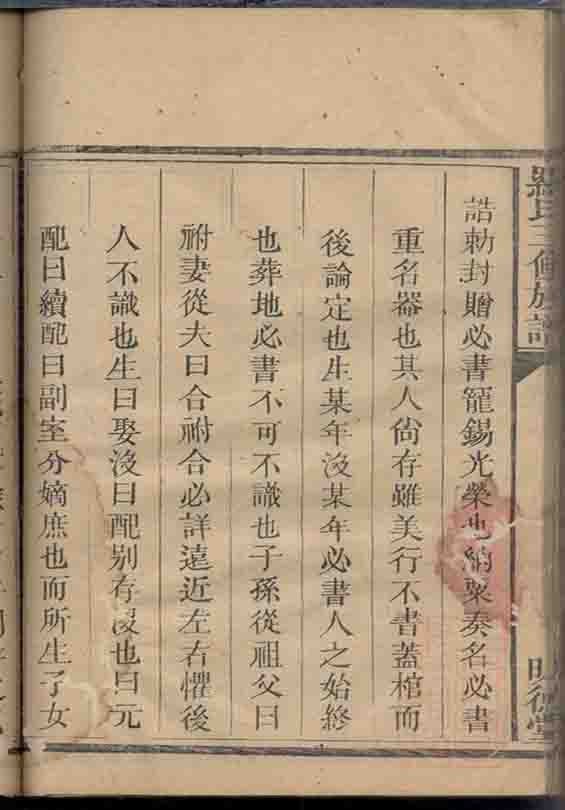 氏三修族譜
誥勅封贈必書寵錫光榮也納粟奏名必書
重名器也其人尙存雖美行不書蓋棺而
後論定也生某年沒某年必書人之始終
也葬地必書不可不識也子孫從祖父曰
祔妻從夫曰合祔合必詳遠近左右懼後
人不識也生曰娶沒曰配别存沒也曰元
配曰續配曰副室分嫡庶也而所生子女